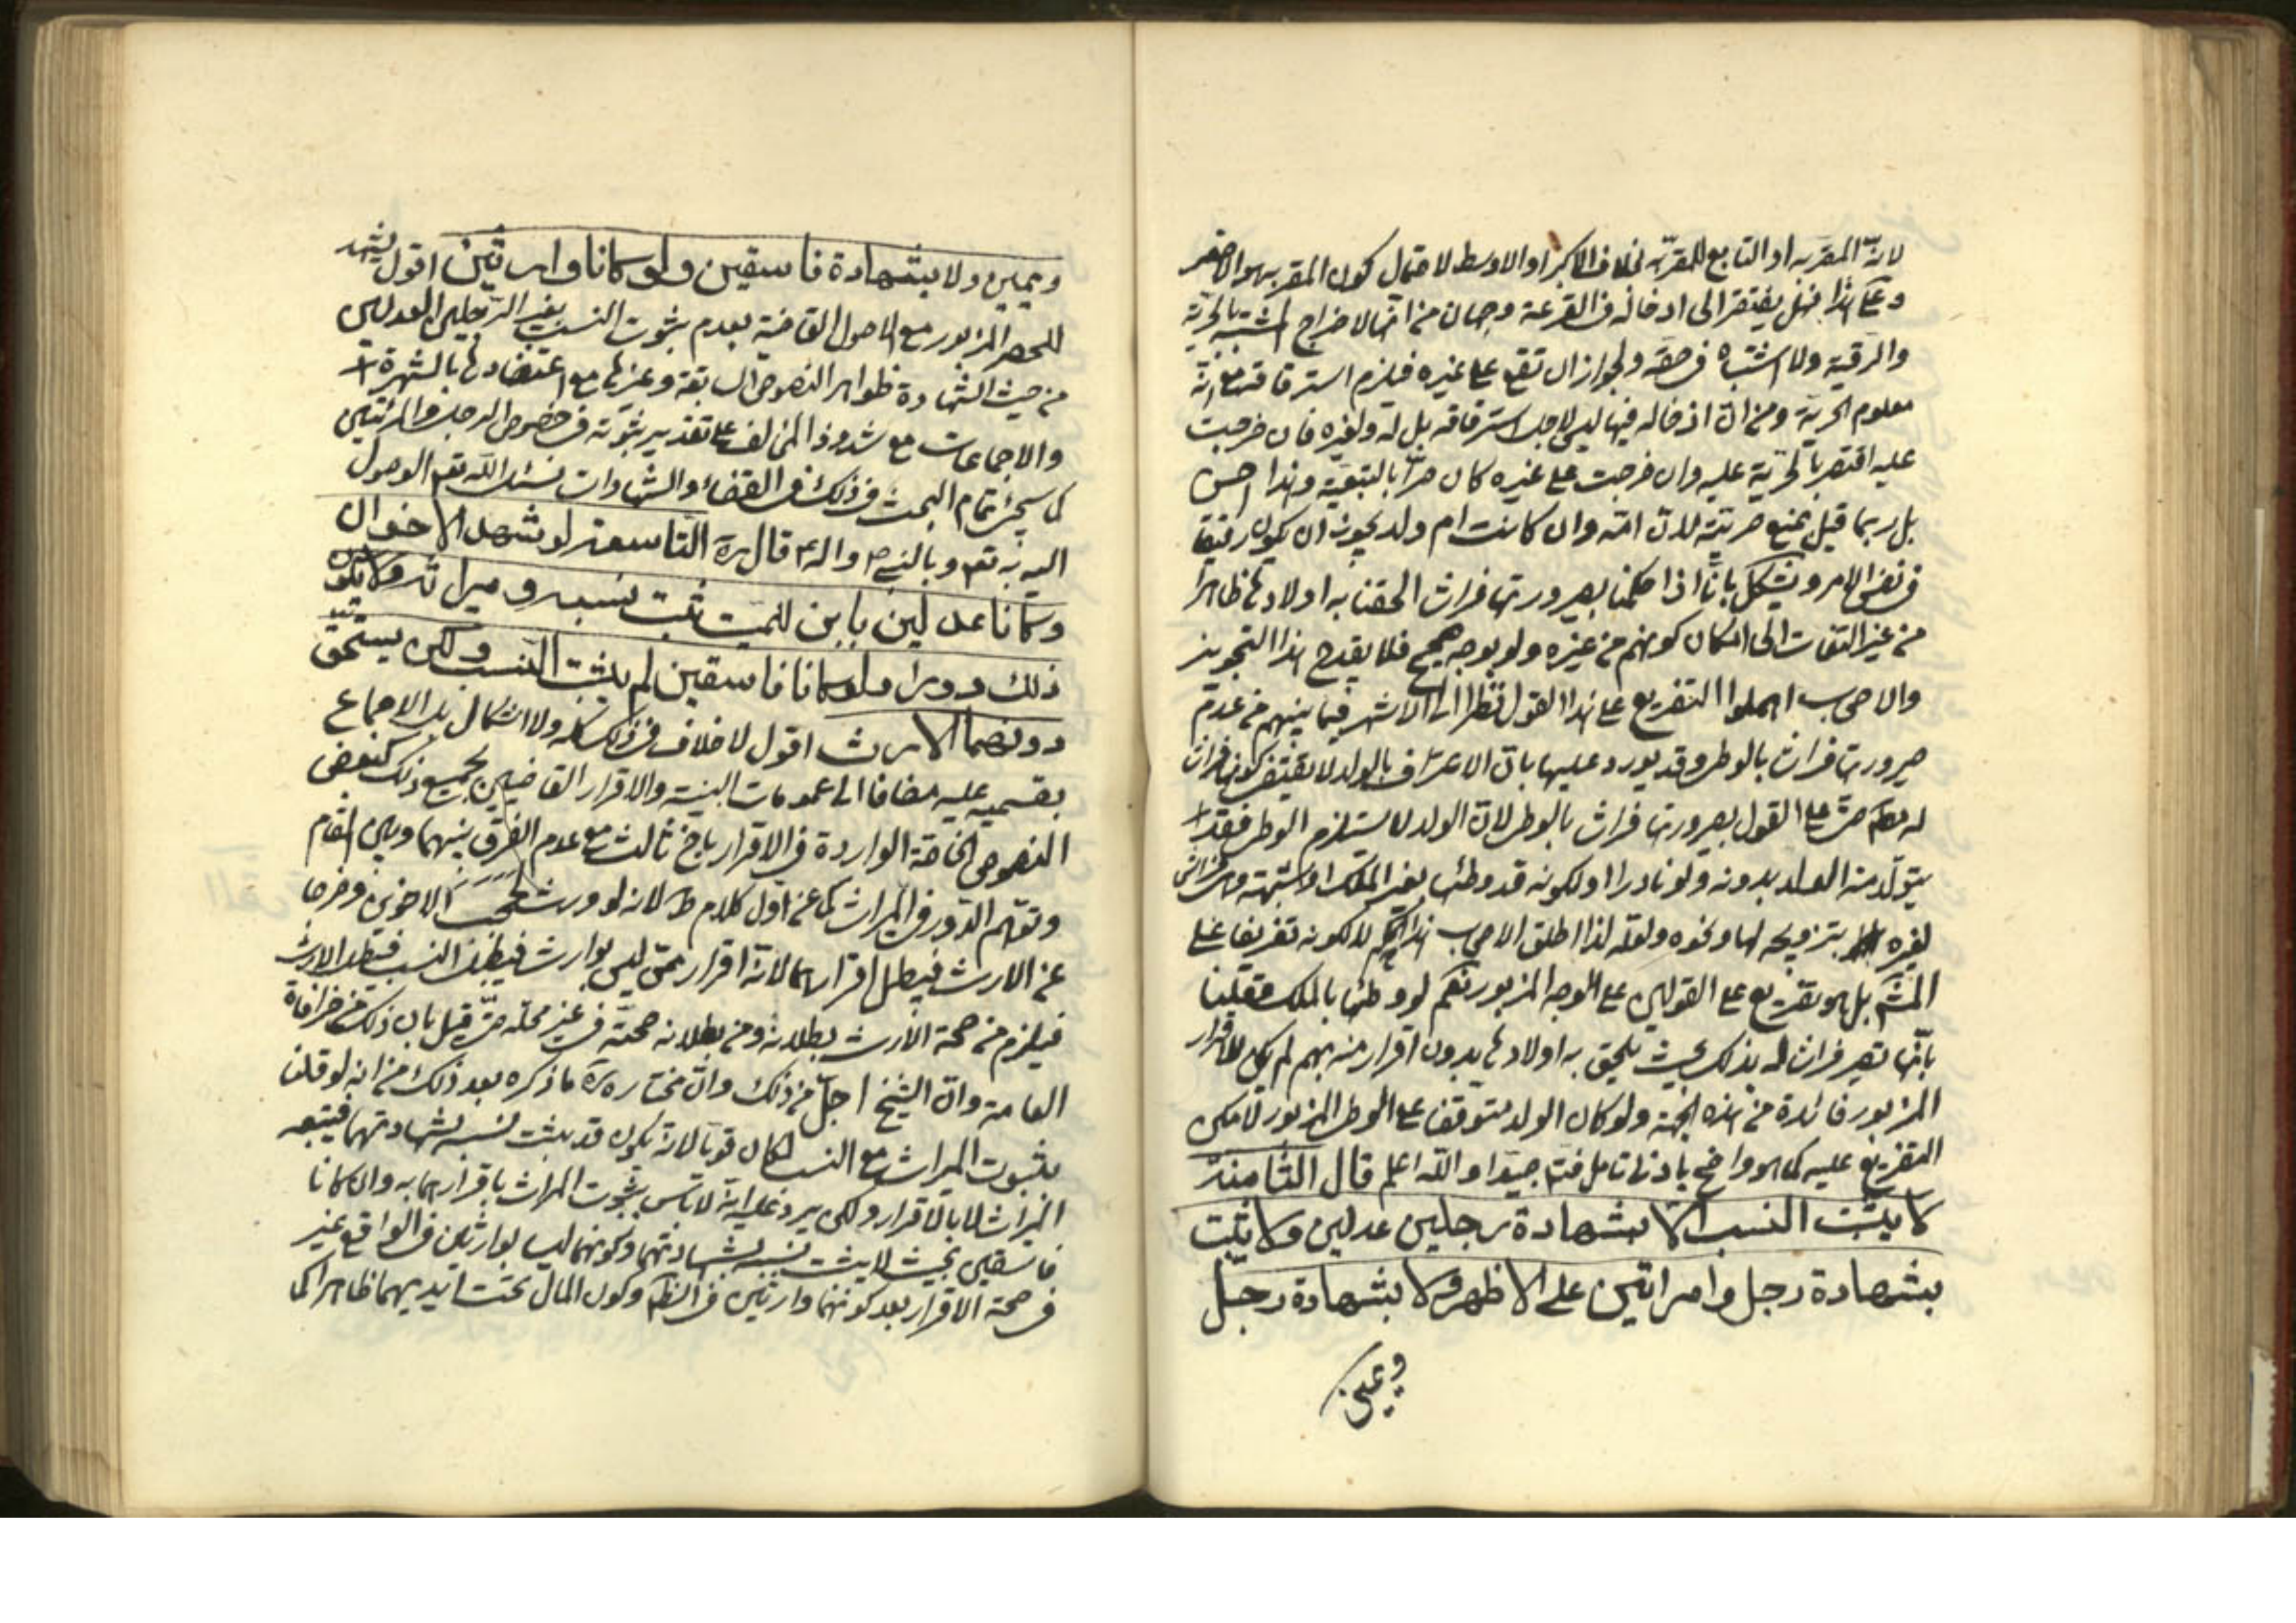 لانّه المقرّ به او التابع للمقرّ به بخلاف الاكبر او الاوسط لاحتمال كون المقر به هو الاصغر
وعلى هذا فهل يفتقر الى ادخاله فى القرعة وجهان من انّها لاخراج المشتبه بالحرّية
والرقية ولا اشتباه فى حقّه ولجواز ان تقع على غيره فيلزم استرقاقه مع انّه
معلوم الحريّة ومن انّ ادخاله فيها ليس لاجل استرقاقه بل له ولغيره فان خرجت
عليه اقتصر بالحرّية عليه وان خرجت على غيره كان حرّا بالتبعيّة وهذا احسن
بل ربما قيل بمنع حريّته لانّ امّه وان كانت ام ولد يجوز ان يكون رقيقا
فى نفس الامر ويشكل بانّا اذا حكمنا بصيرورتها فراشا الحقنا به اولادها ظاهرا
من غير التفات الى امكان كونهم من غيره ولو بوجه صحيح فلا يقدح هذا التجويز
والاصحاب اهملوا التفريع على هذا القول نظرا الى الاشهر فيما بينهم من عدم
صيرورتها فراشا بالوطى وقد يورد عليها بانّ الاعتراف بالولد لا يقتضى كونها فراشا
له مطلقا حتّى على القول بصيرورتها فراشا بالوطى لانّ الولد لا يستلزم الوطى فقد
يتولّد منه الولد بدونه ولو نادرا او لكونه قد وطئها بغير الملك او شبهته
لغيره بتزويجه لها ونحوه ولعلّه لذا اطلق الاصحاب هذا الحكم لا لكونه تفريعا على
المشهور بل هو تفريع على القولين على الوجه المزبور نعم لو وطئها بالملك وقلنا
بانّها تصير فراشا له بذلك بحيث يلحق به اولادها بدون اقرار منه بهم لم يكن للاقرار
المزبور فائدة من هذه الجهة ولو كان الولد متوقفا على الوطى المزبور لامكن
التفريع عليه كما هو واضح بادنى تامل فتامّل جيّدا والله اعلم قال الثامنة
لا يثبت النسب الا بشهادة رجلين عدلين ولا يثبت
بشهادة رجل وامراتين على الاظهر ولا بشهادة رجل
ويمين
ويمين ولا بشهادة فاسقين ولو كانا وارثين اقول يشهد
للحصر المزبور مع الاصول القاضية بعدم ثبوت النسب بغير الرّجلين العدلين
من حيث الشهادة ظواهر النصوص السابقة وغيرها مع اعتضادها بالشهرة
والاجماعات مع شذوذ المخالف على تقدير ثبوته فى خصوص الرجل والمرئتين
كما سيجئ تمام البحث فى ذلك فى القضاء والشهادات نسئل الله تعم الوصول
اليه به تعم وبالنبى ص واله ع قال ره التاسعة لو شهد الاخوان
وكانا عدلين بابن للميّت ثبت نسبه وميراثه ولا يكون
ذلك دورا ولو كانا فاسقين لم يثبت النسب ولكن يستحقّ
دونهما الارث اقول لا خلاف فى ذلك كله ولا اشكال بل الاجماع
بقسميه عليه مضافا الى عمومات البيّنة والاقرار القاضيين بجميع ذلك كبعض
النصوص الخاصّة الواردة فى الاقرار باخ ثالث مع عدم الفرق بينهما وبين المقام
وتوهّم الدّور فى الميراث كما عن اوّل كلام ط لانه لو ورث لحجب الاخوين وخرجا
عن الارث فيبطل اقرارهما لانّه اقرار ممّن ليس بوارث فيبطل النسب فيبطل الارث
فيلزم من صحّة الارث بطلانه ومن بطلانه صحّته فى غير محلّه حتّى قيل بان ذلك من خرافات
العامة وانّ الشيخ اجلّ من ذلك وانّ مختاره ره ما ذكره بعد ذلك من انه لو قلنا
بثبوت الميراث مع النسب لكان قويّا لانّه يكون قد يثبت نسبه بشهادتهما فيتبعه
الميراث لا بالاقرار ولكن يرد عليه انّه لا باس بثبوت الميراث باقرارهما به وان كانا
فاسقين بحيث لا يثبت نسبه بشهادتهما وكونهما ليسا بوارثين فى الواقع غير
فى صحّة الاقرار بعد كونهما وارثين فى الظاهر وكون المال تحت ايديهما ظاهرا كما